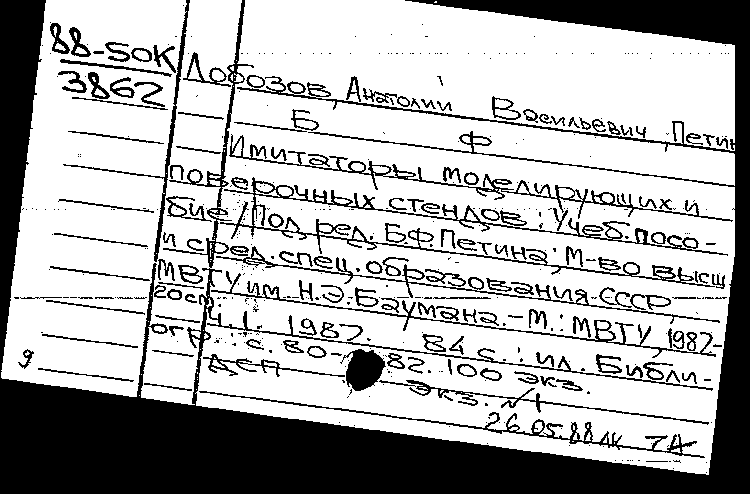 88-50К
3862
Лобозов, Анатолий Васильевич, Петин
Б Ф
Имитаторы моделирующих и
поверочных стендов : Учеб. посо-
бие / Под ред. Б.Ф. Петина; М-во высш
и сред. спец. образования СССР,
МВТУ им. Н.Э. Баумана. - М. : МВТУ, 1987-
Ч. 1. 1987. 84 с. : ил. Библи-
огр.: с. 80-82. 100 экз.
ДСП экз. №1
26.05.88
9